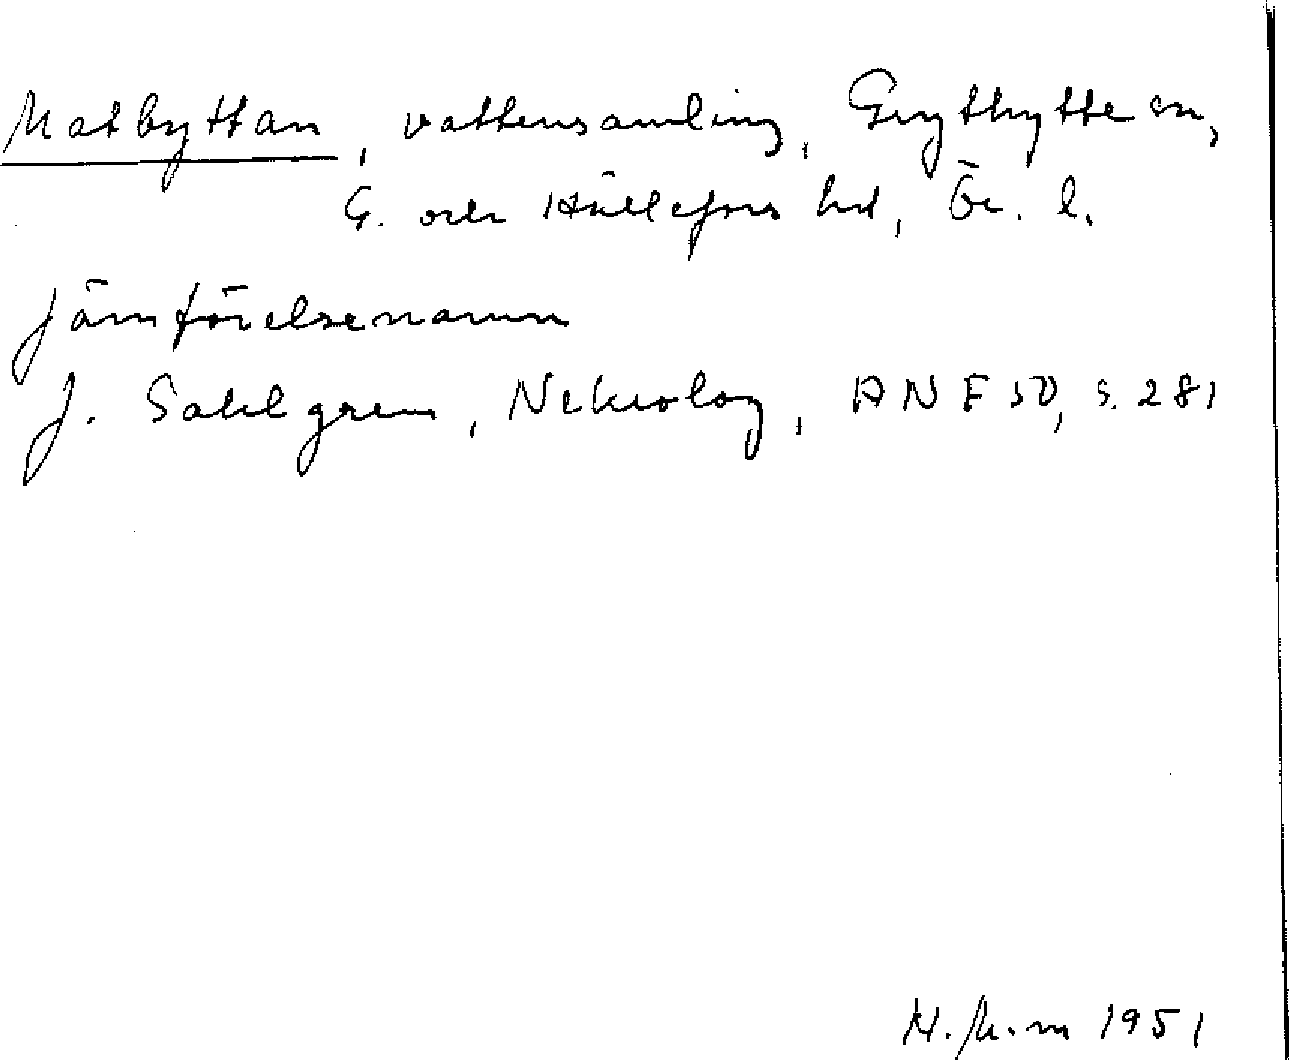 Matbyttan, vattensamling, Grythytte sn,
G. och Hällefors hd, Ör. l.
jämförelsenamn
J. Sahlgren, Nekrolog, ANF 50, s. 281
1951